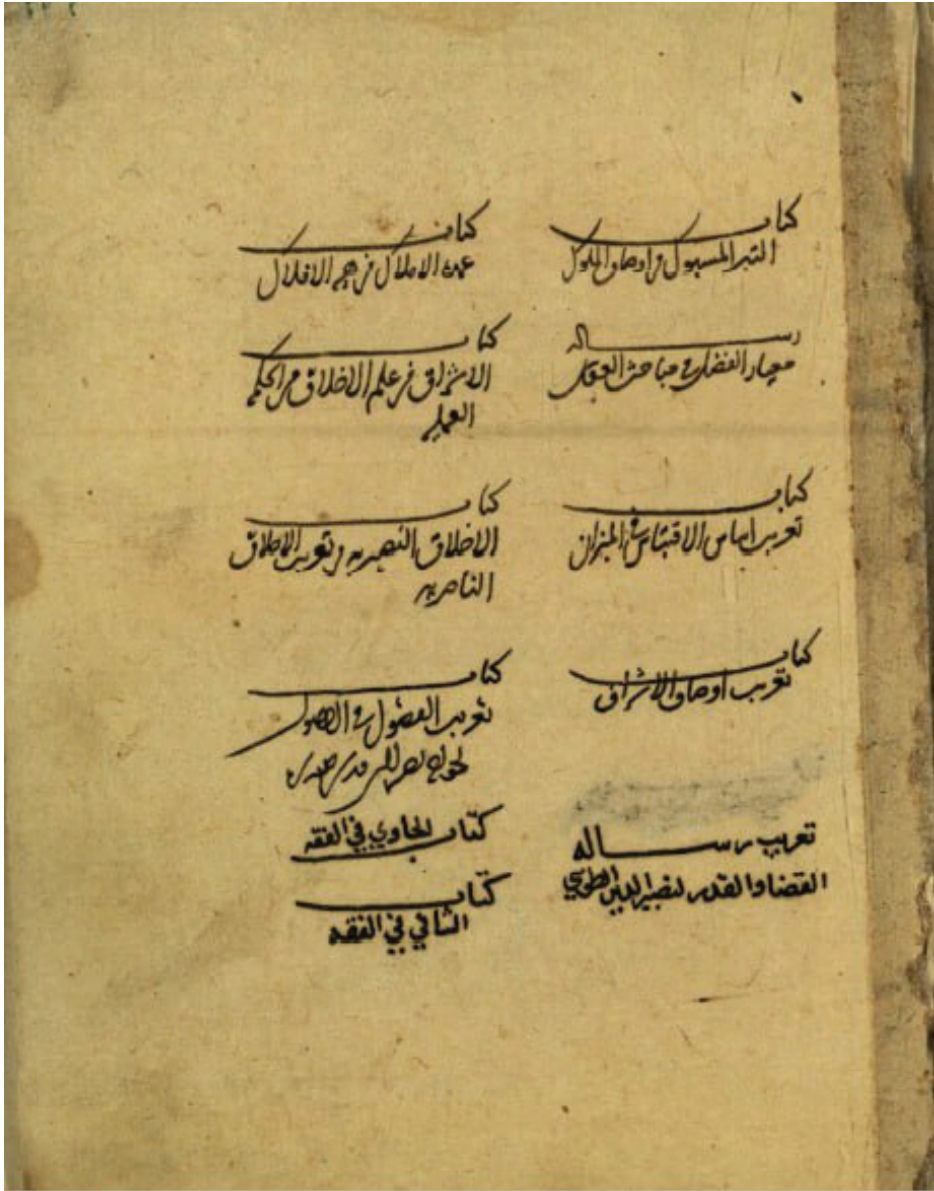 كتاب
التبر المسبوك في اوصاف الملوك
رساله
معيار الفضل في مباحث العقل
كتاب
تعريب اساس الاقتباس في الميزان
كتاب
تعريب اوصاف الاشراف
تعريب رساله
القضا والقدر لنصير الدين الطوسي
كتاب
عمدة الاملاك في هيئة الافلاك
كتاب
الاشراق في علم الاخلاق من الحكمه
العمليه
كتاب
الاخلاق النصيريه في تعريب الاخلاق
الناصريه
كتاب
تعريب الفصول في الاصول
كتاب الحاوي في الفقه
كتاب
الشافي في الفقه